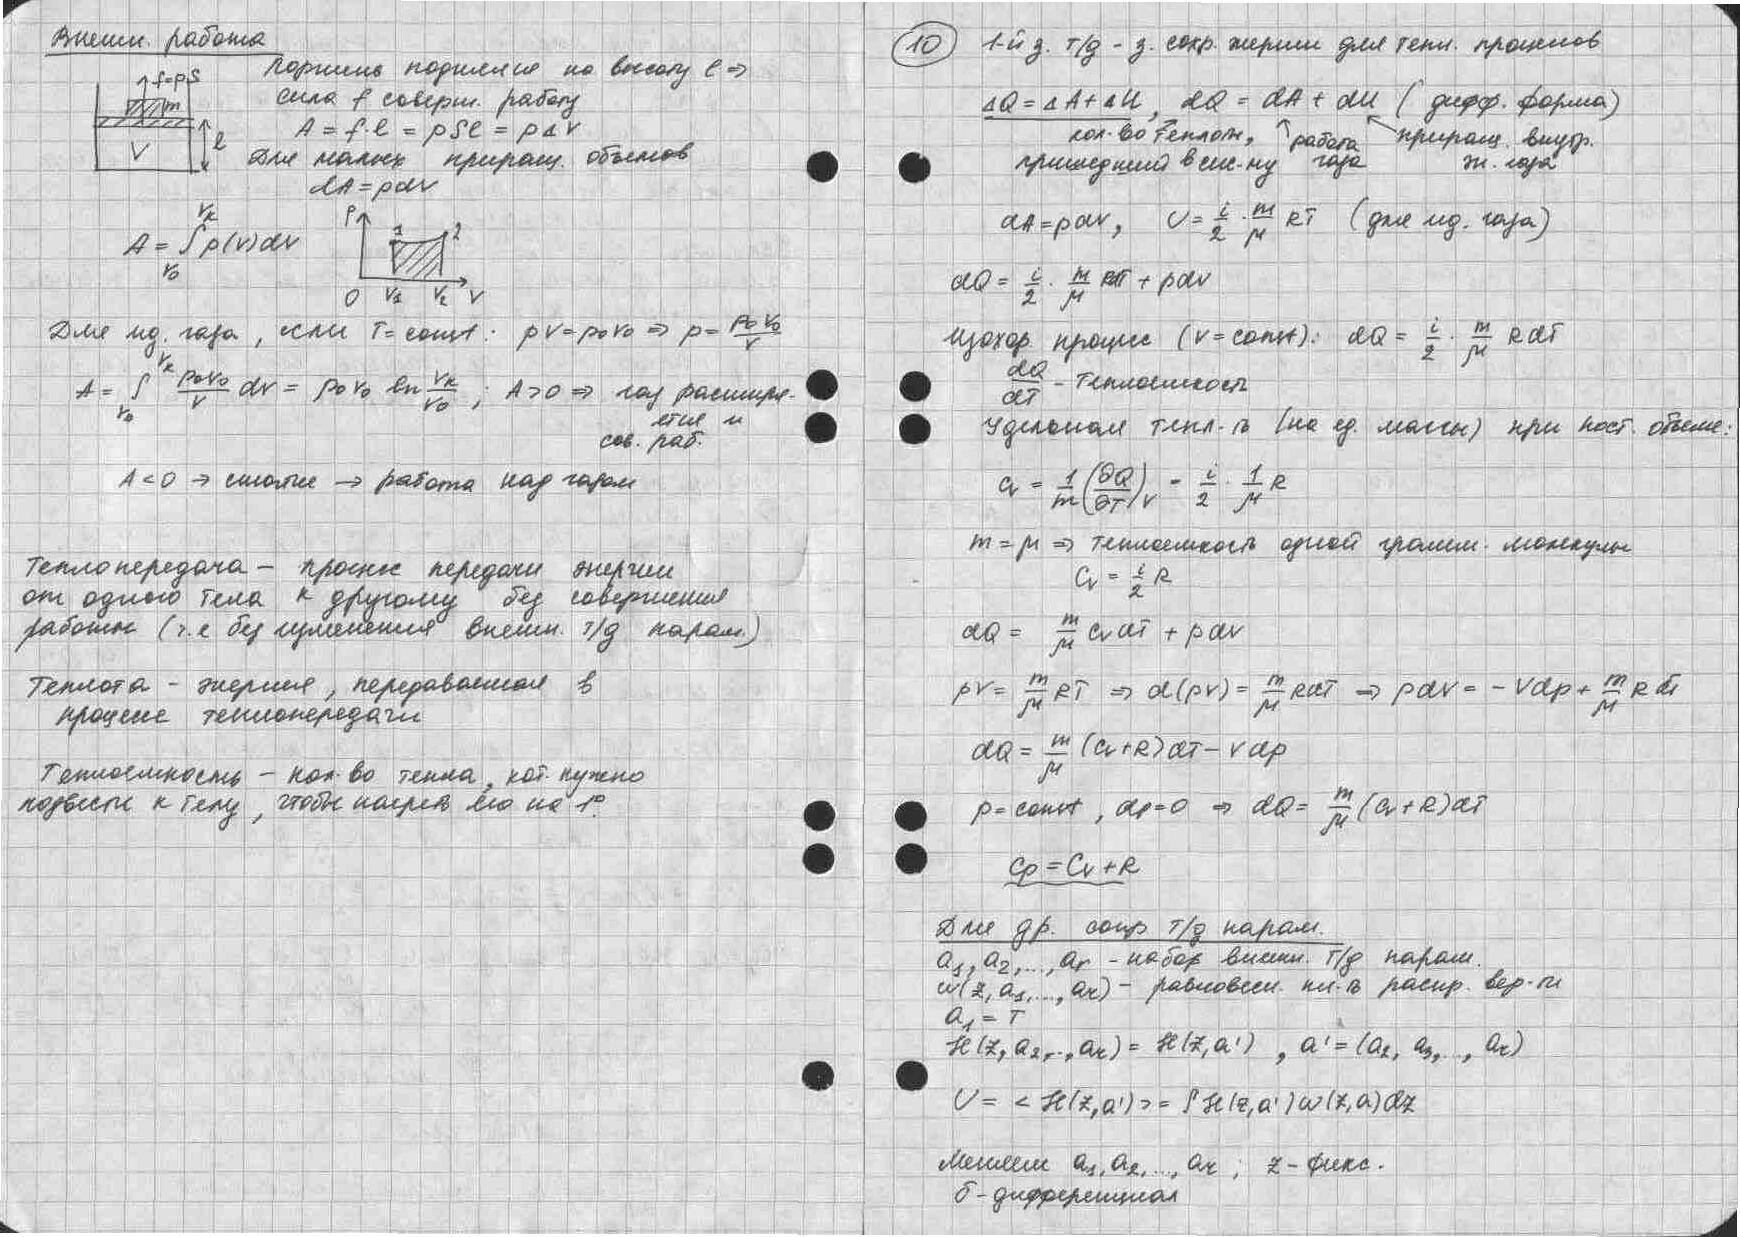 Внешн. работа
f=pS
m
l
V
Поршень поднялся на высоту l ⇒
сила f соверш. работу
A = f·l = pSl = pΔV
Для малых приращ. объемов
dA = pdV
A = ∫_{V₀}^{Vₖ} p(V)dV
p
1
2
0 V₁ V₂ V
Для ид. газа, если T = const: pV = p₀V₀ ⇒ p = p₀V₀/V
A = ∫_{V₀}^{Vₖ} p₀V₀/V dV = p₀V₀ ln Vₖ/V₀ ; A>0 ⇒ газ расширя-
ется и
сов. раб.
A<0 → сжатие → работа над газом
Теплопередача – процесс передачи энергии
от одного тела к другому без совершения
работы (т.е без изменения внешн. т/д парам.)
Теплота – энергия, передаваемая в
процессе теплопередачи
Теплоемкость – кол-во тепла, кот. нужно
подвести к телу, чтобы нагрев его на 1°.
10
1-й з. т/д – з. сохр. энергии для тепл. процессов
ΔQ = ΔA + ΔU, dQ = dA + dU (дифф. форма)
кол-во теплоты, работа приращ. внутр.
пришедший в сис-му газа эн. газа
dA = pdV, U = i/2 · m/μ RT (для ид. газа)
dQ = i/2 · m/μ RdT + pdV
Изохор процесс (V = const): dQ = i/2 · m/μ RdT
dQ/dT – теплоемкость
Удельная тепл-ть (на ед. массы) при пост. объеме:
c_V = 1/m (∂Q/∂T)_V = i/2 · 1/μ R
m = μ ⇒ теплоемкость одной грамм. молекулы
C_V = i/2 R
dQ = m/μ C_V dT + pdV
pV = m/μ RT ⇒ d(pV) = m/μ RdT ⇒ pdV = −Vdp + m/μ RdT
dQ = m/μ (C_V + R)dT − Vdp
p = const, dp = 0 ⇒ dQ = m/μ (C_V + R)dT
C_p = C_V + R
Для др. сопр т/д парам.
a₁, a₂, ..., aᵣ – набор внешн. т/д парам.
w(z, a₁, ..., aᵣ) – равновесн. пл-ть распр. вер-ти
a₁ = T
H(z, a₂, .., aᵣ) = H(z, a'), a' = (a₂, a₃, .., aᵣ)
U = <H(z, a')> = ∫H(z, a')w(z, a)dz
Меняем a₁, a₂, ..., aᵣ ; z – фикс.
δ – дифференциал